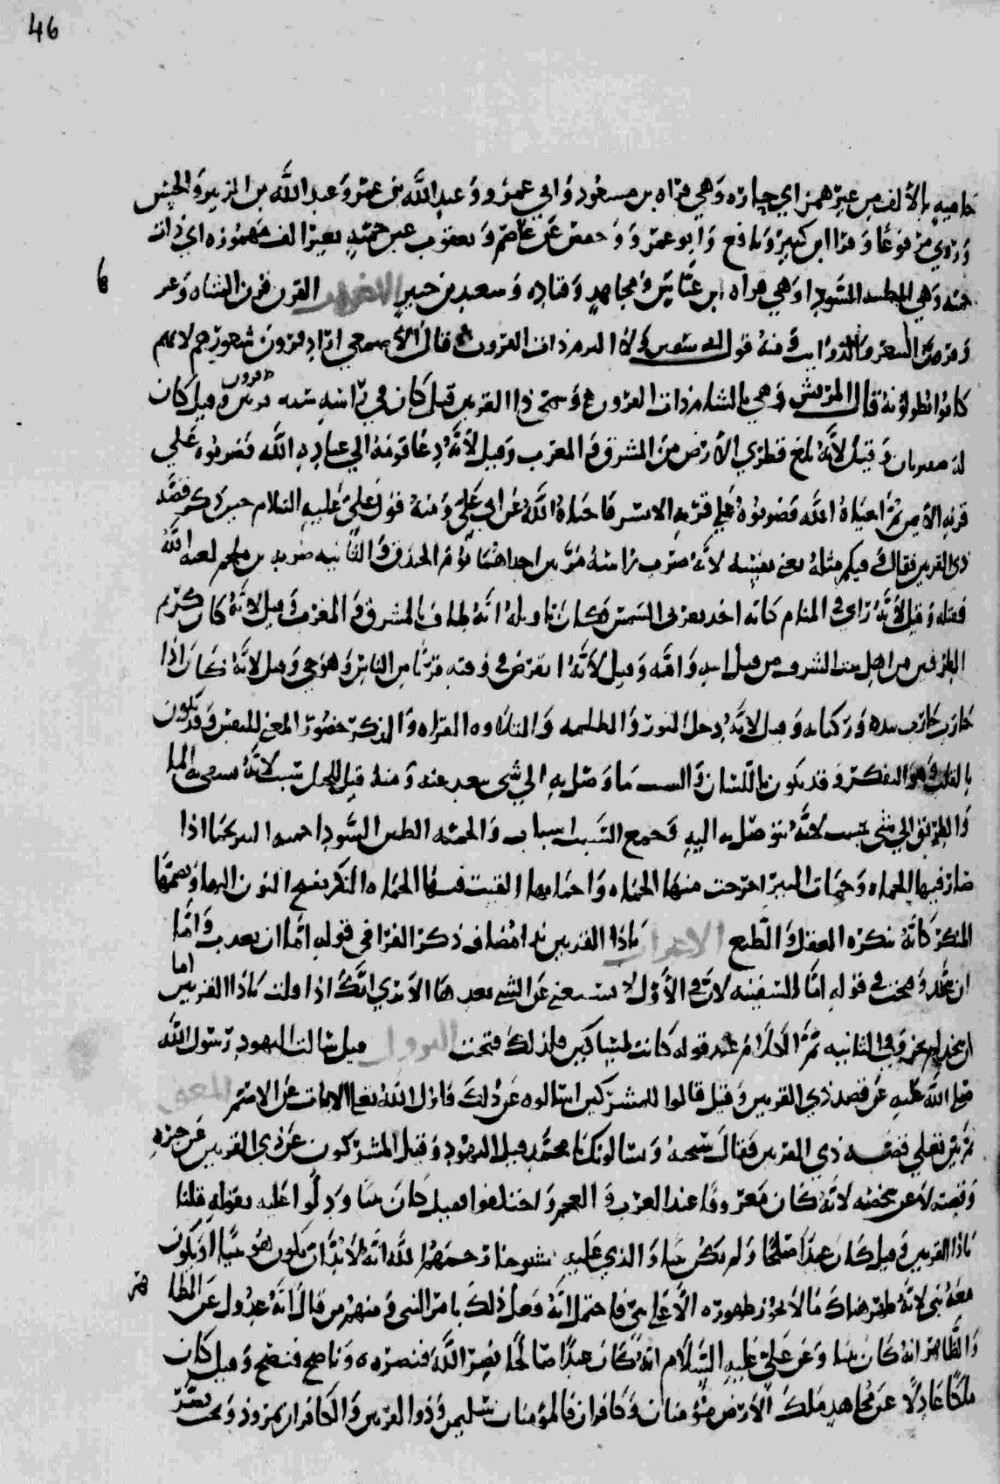 46
حاميه بالألف من غير همز اي حارة وهي قراه بن مسعود وابي عمرو وعبد الله بن عمرو وعبد الله بن الزبير والحسن
وروي مرفوعا وقرا ابن كثير ونافع وابو عمرو وحفص عن عاصم ويعقوب عين حمئه بغير الف مهموزه اي ذات
حمئه وهي الطينه السودا وهي قراه ابن عباس ومجاهد وقتاده وسعيد بن جبير القرن قرن الشاه وغير
كانوا يطولونه قال المرقش وهي بالشام ذات القرون وسمي ذا القرنين قيل كان في راسه شبه قرنين وقيل كان
له ضفيرتان وقيل لأنه بلغ قطري الأرض من المشرق والمغرب وقيل لأنه دعا قومه الي عبادة الله فضربوه علي
قرنه الأيمن ثم احياه الله فضربوه علي قرنه الايسر فاحياه الله عن ابي علي ومنه قول علي عليه السلام حين ذكر قصه
ذي القرنين فقال وفيكم مثله يعني نفسه لأنه ضرب راسه مرتين احداهما يوم الخندق والثانيه ضربه بن ملجم لعنه الله
فقتله وقيل لأنه راي في المنام كانه اخذ بقرني الشمس فكان تاويله انه طاف بالمشرق والمغرب وقيل لأنه كان كريم
الطرفين من اهل بيت الشرف من قبل ابيه وامه وقيل لأنه انقرض في وقته قرنان من الناس وهو حي وقيل لأنه كان اذا
حارب حارب بيده وركابه وقيل لأنه دخل النور والظلمه والتلاوه القراه والذكر حضور المعني للنفس وقد يكون
بالقلب وهو التفكر وقد يكون باللسان والسبب ما وصل به الي شي يبعد عنه ومنه قيل للحبل سبب لأنه
والطريق الي شي سبب لأنه يتوصل به اليه وجمع السبب اسباب والحمئه الطين السودا اذا
صار فيها الحماه وحمات البير اخرجت منها الحماه واحماتها القيت فيها الحماه النكر
المنكر كانه نكره العقل والطبع الاعراب ياذا القرنين ندا مضاف ذكر الفرا في قوله اما ان تعذب واما
ان تتخذ وفتحت في قوله اما السفينه لأن في الأول لا يستغني عن الشي بعد اما
قوله كانت لمساكين فلذلك فتحت النزول قيل سالت اليهود رسول الله
صلي الله عليه عن قصه ذي القرنين وقيل قالوا للمشركين اسالوه عن ذلك فانزل الله تعالي الايات عن الاصم المعني
ثم بين تعلي قصه ذي القرنين فقال سبحنه ويسالونك يا محمد قيل اليهود وقيل المشركون عن ذي القرنين عن خبره
وقصته لا عن شخصه لأنه كان معروفا عند العرب والعجم واختلفوا فقيل كان نبيا ودلوا عليه بقوله قلنا
ياذا القرنين وقيل كان عبدا صالحا ولم يكن نبيا والذي عليه شيوخنا رحمهم الله انه لا بد ان يكون هو نبيا او يكون
معه نبي لأنه ظهر هناك ما لا يجوز ظهوره الا علي نبي فاحتمل انه فعل ذلك بامر النبي ومنهم من قال انه عدول عن الظا
هر
والظاهر انه كان نبيا وعن علي عليه السلام انه كان عبدا صالحا نصر الله فنصره وناصح فنصح وقيل كان
ملكا عادلا عن مجاهد ملك الأرض مؤمنان وكافران فالمؤمنان سليمن وذو القرنين والكافران نمرود وبخت نصر